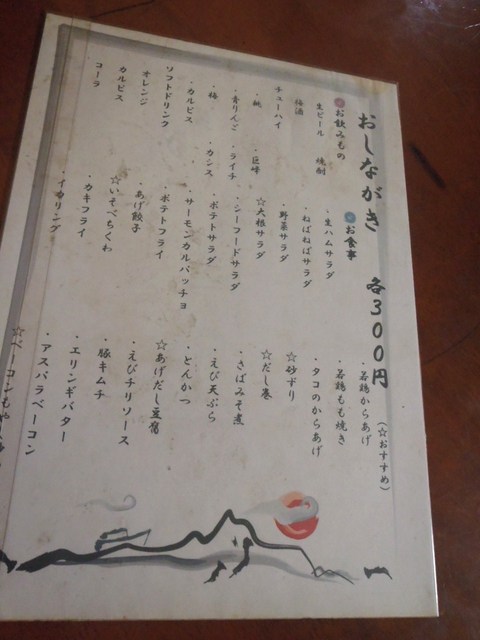 おしながき 各300円
(☆おすすめ)
お飲みもの
生ビール 焼酎
梅酒
チューハイ
・桃 ・巨峰
・青りんご ・ライチ
・梅 ・カシス
・カルピス
ソフトドリンク
オレンジ
カルピス
コーラ
お食事
・生ハムサラダ
・ねばねばサラダ
・野菜サラダ
☆大根サラダ
・シーフードサラダ
・ポテトサラダ
・サーモンカルパッチョ
・ポテトフライ
・あげ餃子
☆いそべちくわ
・カキフライ
・イカリング
・若鶏からあげ
・若鶏もも焼き
・タコのからあげ
☆砂ずり
☆だし巻
・さばみそ煮
・えび天ぷら
・とんかつ
☆あげだし豆腐
・えびチリソース
・豚キムチ
・エリンギバター
・アスパラベーコン
☆ベーコンもや